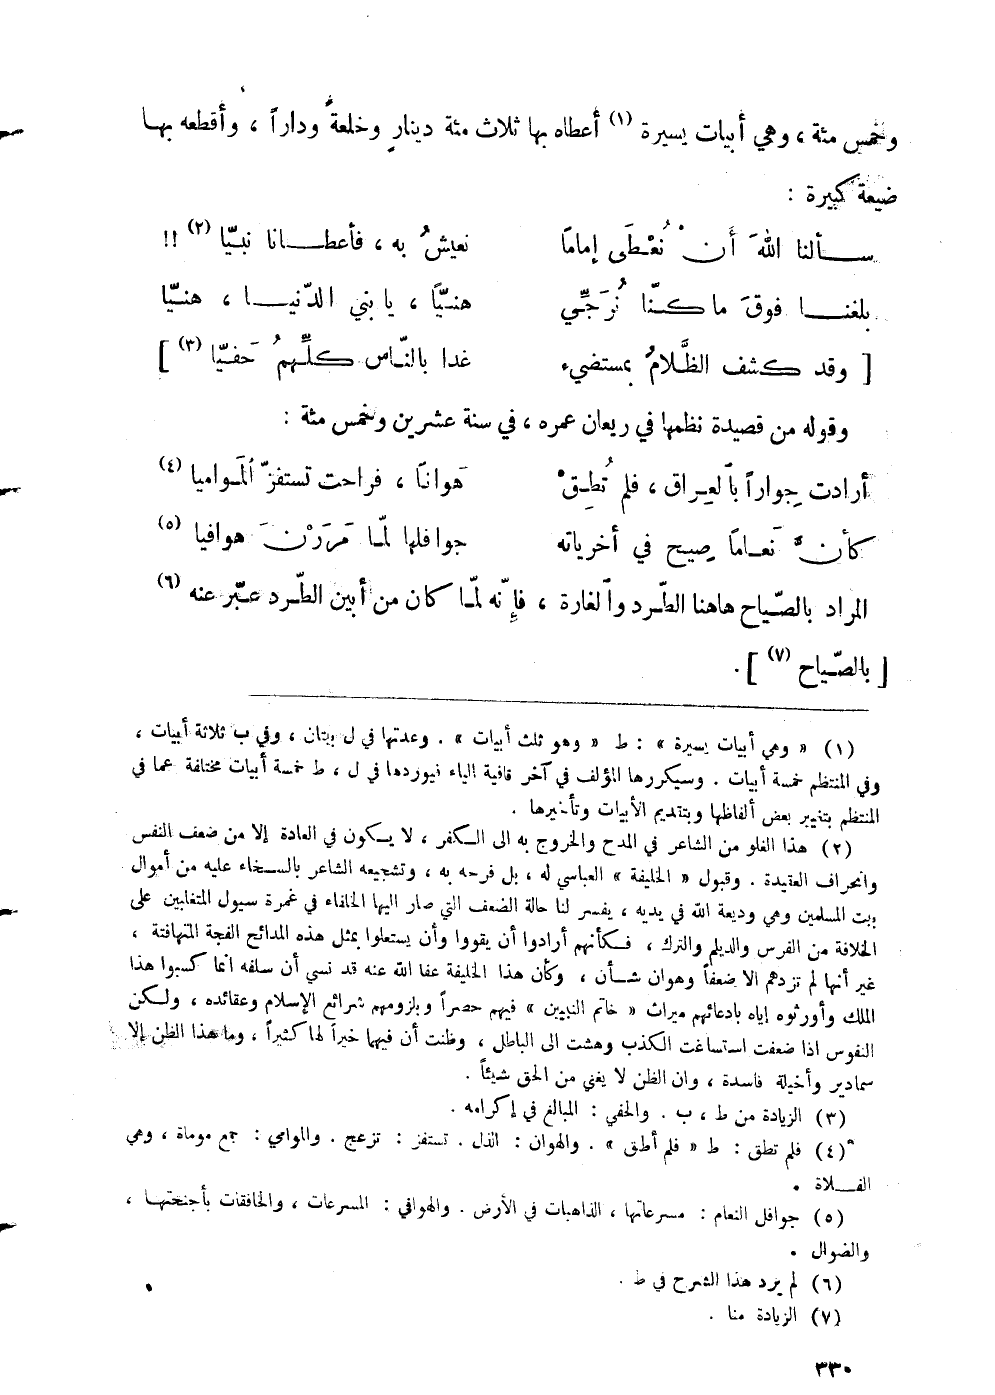 وخمس مئة ، وهي أبيات يسيرة (١) أعطاه بها ثلاث مئة دينارٍ وخلعةً وداراً ، وأقطعه بهـا
ضيعة كبيرة :
ســألنا اللهَ أَنْ نُعْطَى إماماً نعيشُ به ، فأعطــانا نبيّا (٢) !!
بلغنــا فوقَ ما كنّا نُرَجِّي هنيّاً ، يا بني الدّنيــا ، هنيّا
[ وقد كشف الظَّلامُ بمستضيء غدا بالنّاس كلِّهمُ حَفيّا (٣) ]
وقوله من قصيدة نظمها في ريعان عمره ، في سنة عشرين وخمس مئة :
أرادت جِواراً بالعِراق ، فلم تُطِقْ هَوانًا ، فراحت تستفزّ المَواميا (٤)
كأنّ نَعاماً صِيح في أخرياته جوافلها لمّا مَرَرْنَ هوافيا (٥)
المراد بالصّياح هاهنا الطّرد والغارة ، فإنّه لمّا كان من أبين الطّرد عبّر عنه (٦)
[ بالصّياح (٧) ] .
(١) « وهي أبيات يسيرة » : ط « وهو ثلث أبيات » . وعدتها في ل بيتان ، وفي ب ثلاثة أبيات ،
وفي المنتظم خمسة أبيات . وسيكررها المؤلف في آخر قافية الياء نيوردها في ل ، ط خمسة أبيات مختلفة عما في
المنتظم بتغيير بعض ألفاظها وبتقديم الأبيات وتأخيرها .
(٢) هذا الغلو من الشاعر في المدح والخروج به الى الكفر ، لا يكون في العادة إلا من ضعف النفس
وانحراف العقيدة . وقبول « الخليفة » العباسي له ، بل فرحه به ، وتشجيعه الشاعر بالسخاء عليه من أموال
بيت المسلمين وهي وديعة الله في يديه ، يفسر لنا حالة الضعف التي صار اليها الخلفاء في غمرة سيول المتغلبين على
الخلافة من الفرس والديلم والترك ، فكأنهم أرادوا أن يقووا وأن يستعلوا بمثل هذه المدائح الفجة المتهافتة ،
غير أنها لم تزدهم الا ضعفاً وهوان شـأن ، وكأن هذا الخليفة عفا الله عنه قد نسي أن سلفه انما كسبوا هذا
الملك وأورثوه إياه بادعائهم ميراث « خاتم النبيين » فيهم حصراً وبلزومهم شرائع الإسلام وعقائده ، ولكن
النفوس اذا ضعفت استساغت الكذب وهشت الى الباطل ، وظنت أن فيهما خيراً لها كثيراً ، وما هذا الظن إلا
سمادير وأخيلة فاسدة ، وان الظن لا يغني من الحق شيئاً .
(٣) الزيادة من ط ، ب . والحفي : المبالغ في إكرامه .
(٤) فلم تطق : ط « فلم أطق » . والهوان : الذل . تستفز : تزعج . والموامي : جمع موماة ، وهي
الفــلاة .
(٥) جوافل النعام : مسرعاتها ، الذاهبات في الأرض . والهوافي : المسرعات ، والخافقات بأجنحتهـا ،
والضوال .
(٦) لم يرد هذا الشرح في ط .
(٧) الزيادة منا .
٣٣٠